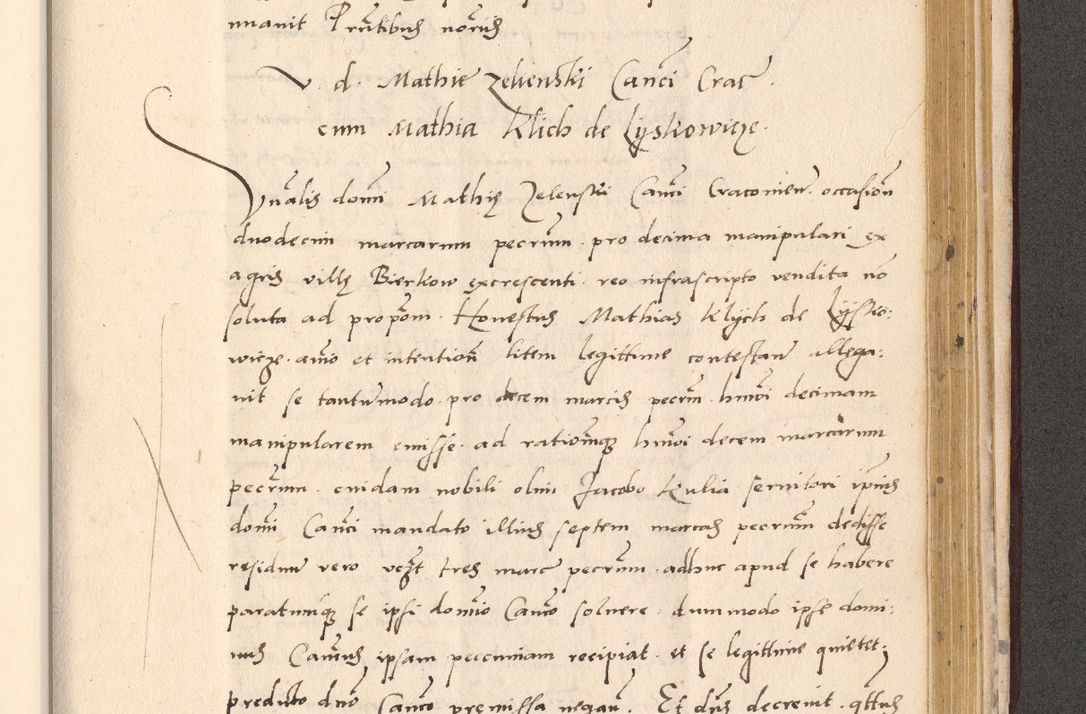 nuavit Pntibus noriis
V. d. Mathie Zelienski Canci Crac.
cum Mathia Klich de Lyskowicze.
Vnalis domi Mathię Zelenski Canci Cracouien. occasion
duodecim marcarum pecrum. pro decima manipulari ex
agris villę Bierkow excrescenti. reo infrascripto vendita no
soluta ad propom. Honestus Mathias Klych de Lysko:
wicze. aio et intention litem legittime contestan allega:
vit se tantumodo. pro decem marcis pecrm. hmoi decimam
manipularem emisse. ad rationemq hmoi decem marcarum
pecrum. cuidam nobili olim Jacobo Kulia seruitori ipius
domi Canci mandato illius septem marcas pecrum dedisse
residuu vero vczt tres marc pecrum. adhuc apud se habere
paratumq se ipsi domino Canco soluere. dummodo ipse domi:
nus Cancus ipsam pecuniam recipiat. et se legittime quietet.
predicto dno Canco premissa negan. Et dns decreuit. qttus